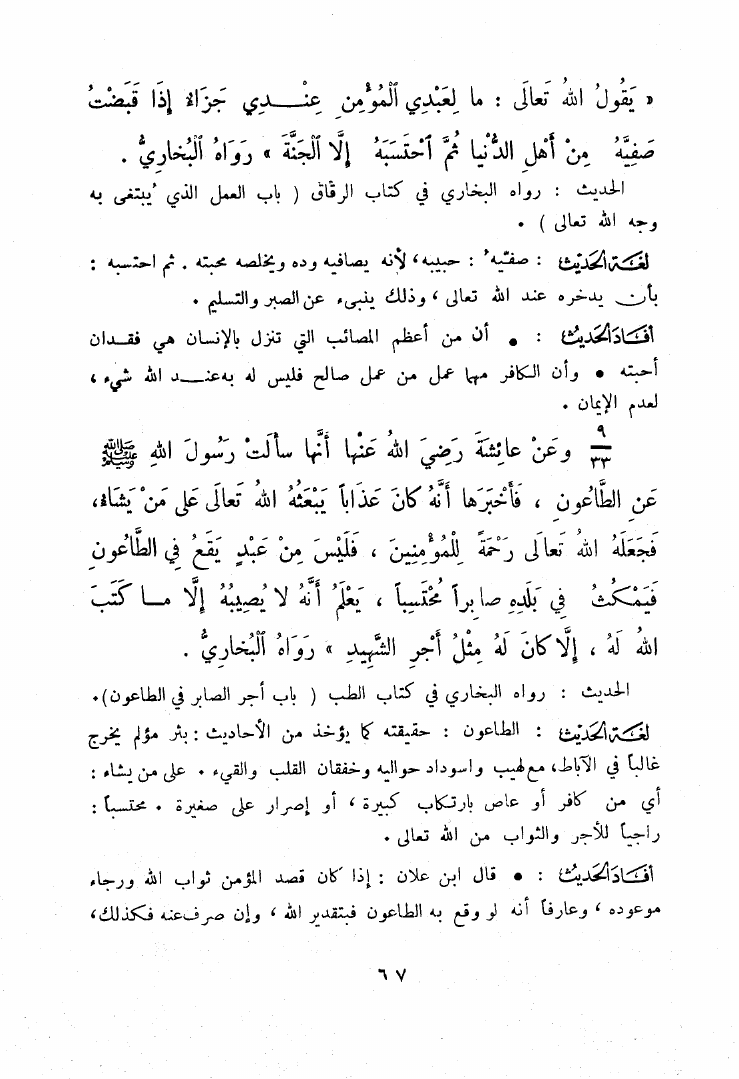 « يَقُولُ اللهُ تَعالَى : ما لِعَبْدِي ٱلْمُؤْمِنِ عِنْدِي جَزَاءٌ إِذَا قَبَضْتُ
صَفِيَّهُ مِنْ أَهْلِ الدُّنْيا ثُمَّ ٱحْتَسَبَهُ إِلَّا ٱلْجَنَّةَ » رَوَاهُ ٱلْبُخارِيُّ .
الحديث : رواه البخاري في كتاب الرقاق ( باب العمل الذي يُبتغى به
وجه الله تعالى ) .
لغة الحديث : صفيّه : حبيبه، لأنه يصافيه وده ويخلصه محبته . ثم احتسبه :
بأن يدخره عند الله تعالى، وذلك ينبىء عن الصبر والتسليم .
أفاد الحديث : • أن من أعظم المصائب التي تنزل بالإنسان هي فقدان
أحبته • وأن الكافر مهما عمل من عمل صالح فليس له به عند الله شيء،
لعدم الإيمان .
٩
٣٣ وعَنْ عائِشَةَ رَضِيَ اللهُ عَنْها أَنَّها سأَلَتْ رَسُولَ اللهِ ﷺ
عَنِ الطَّاعُونِ ، فَأَخْبَرَها أَنَّهُ كانَ عَذَاباً يَبْعَثُهُ اللهُ تَعالَى عَلَى مَنْ يَشاءُ،
فَجَعَلَهُ اللهُ تَعالَى رَحْمَةً لِلْمُؤْمِنِينَ ، فَلَيْسَ مِنْ عَبْدٍ يَقَعُ فِي الطَّاعُونِ
فَيَمْكُثُ فِي بَلَدِهِ صابِراً مُحْتَسِباً ، يَعْلَمُ أَنَّهُ لا يُصِيبُهُ إِلَّا ما كَتَبَ
اللهُ لَهُ ، إِلَّا كانَ لَهُ مِثْلُ أَجْرِ الشَّهِيدِ » رَوَاهُ ٱلْبُخارِيُّ .
الحديث : رواه البخاري في كتاب الطب ( باب أجر الصابر في الطاعون).
لغة الحديث : الطاعون : حقيقته كما يؤخذ من الأحاديث : بثر مؤلم يخرج
غالباً في الآباط، مع لهيب واسوداد حواليه وخفقان القلب والقيء . على من يشاء :
أي من كافر أو عاص بارتكاب كبيرة، أو إصرار على صغيرة . محتسباً :
راجياً للأجر والثواب من الله تعالى .
أفاد الحديث : • قال ابن علان : إذا كان قصد المؤمن ثواب الله ورجاء
موعوده ، وعارفاً أنه لو وقع به الطاعون فبتقدير الله ، وإن صرف عنه فكذلك،
٦٧